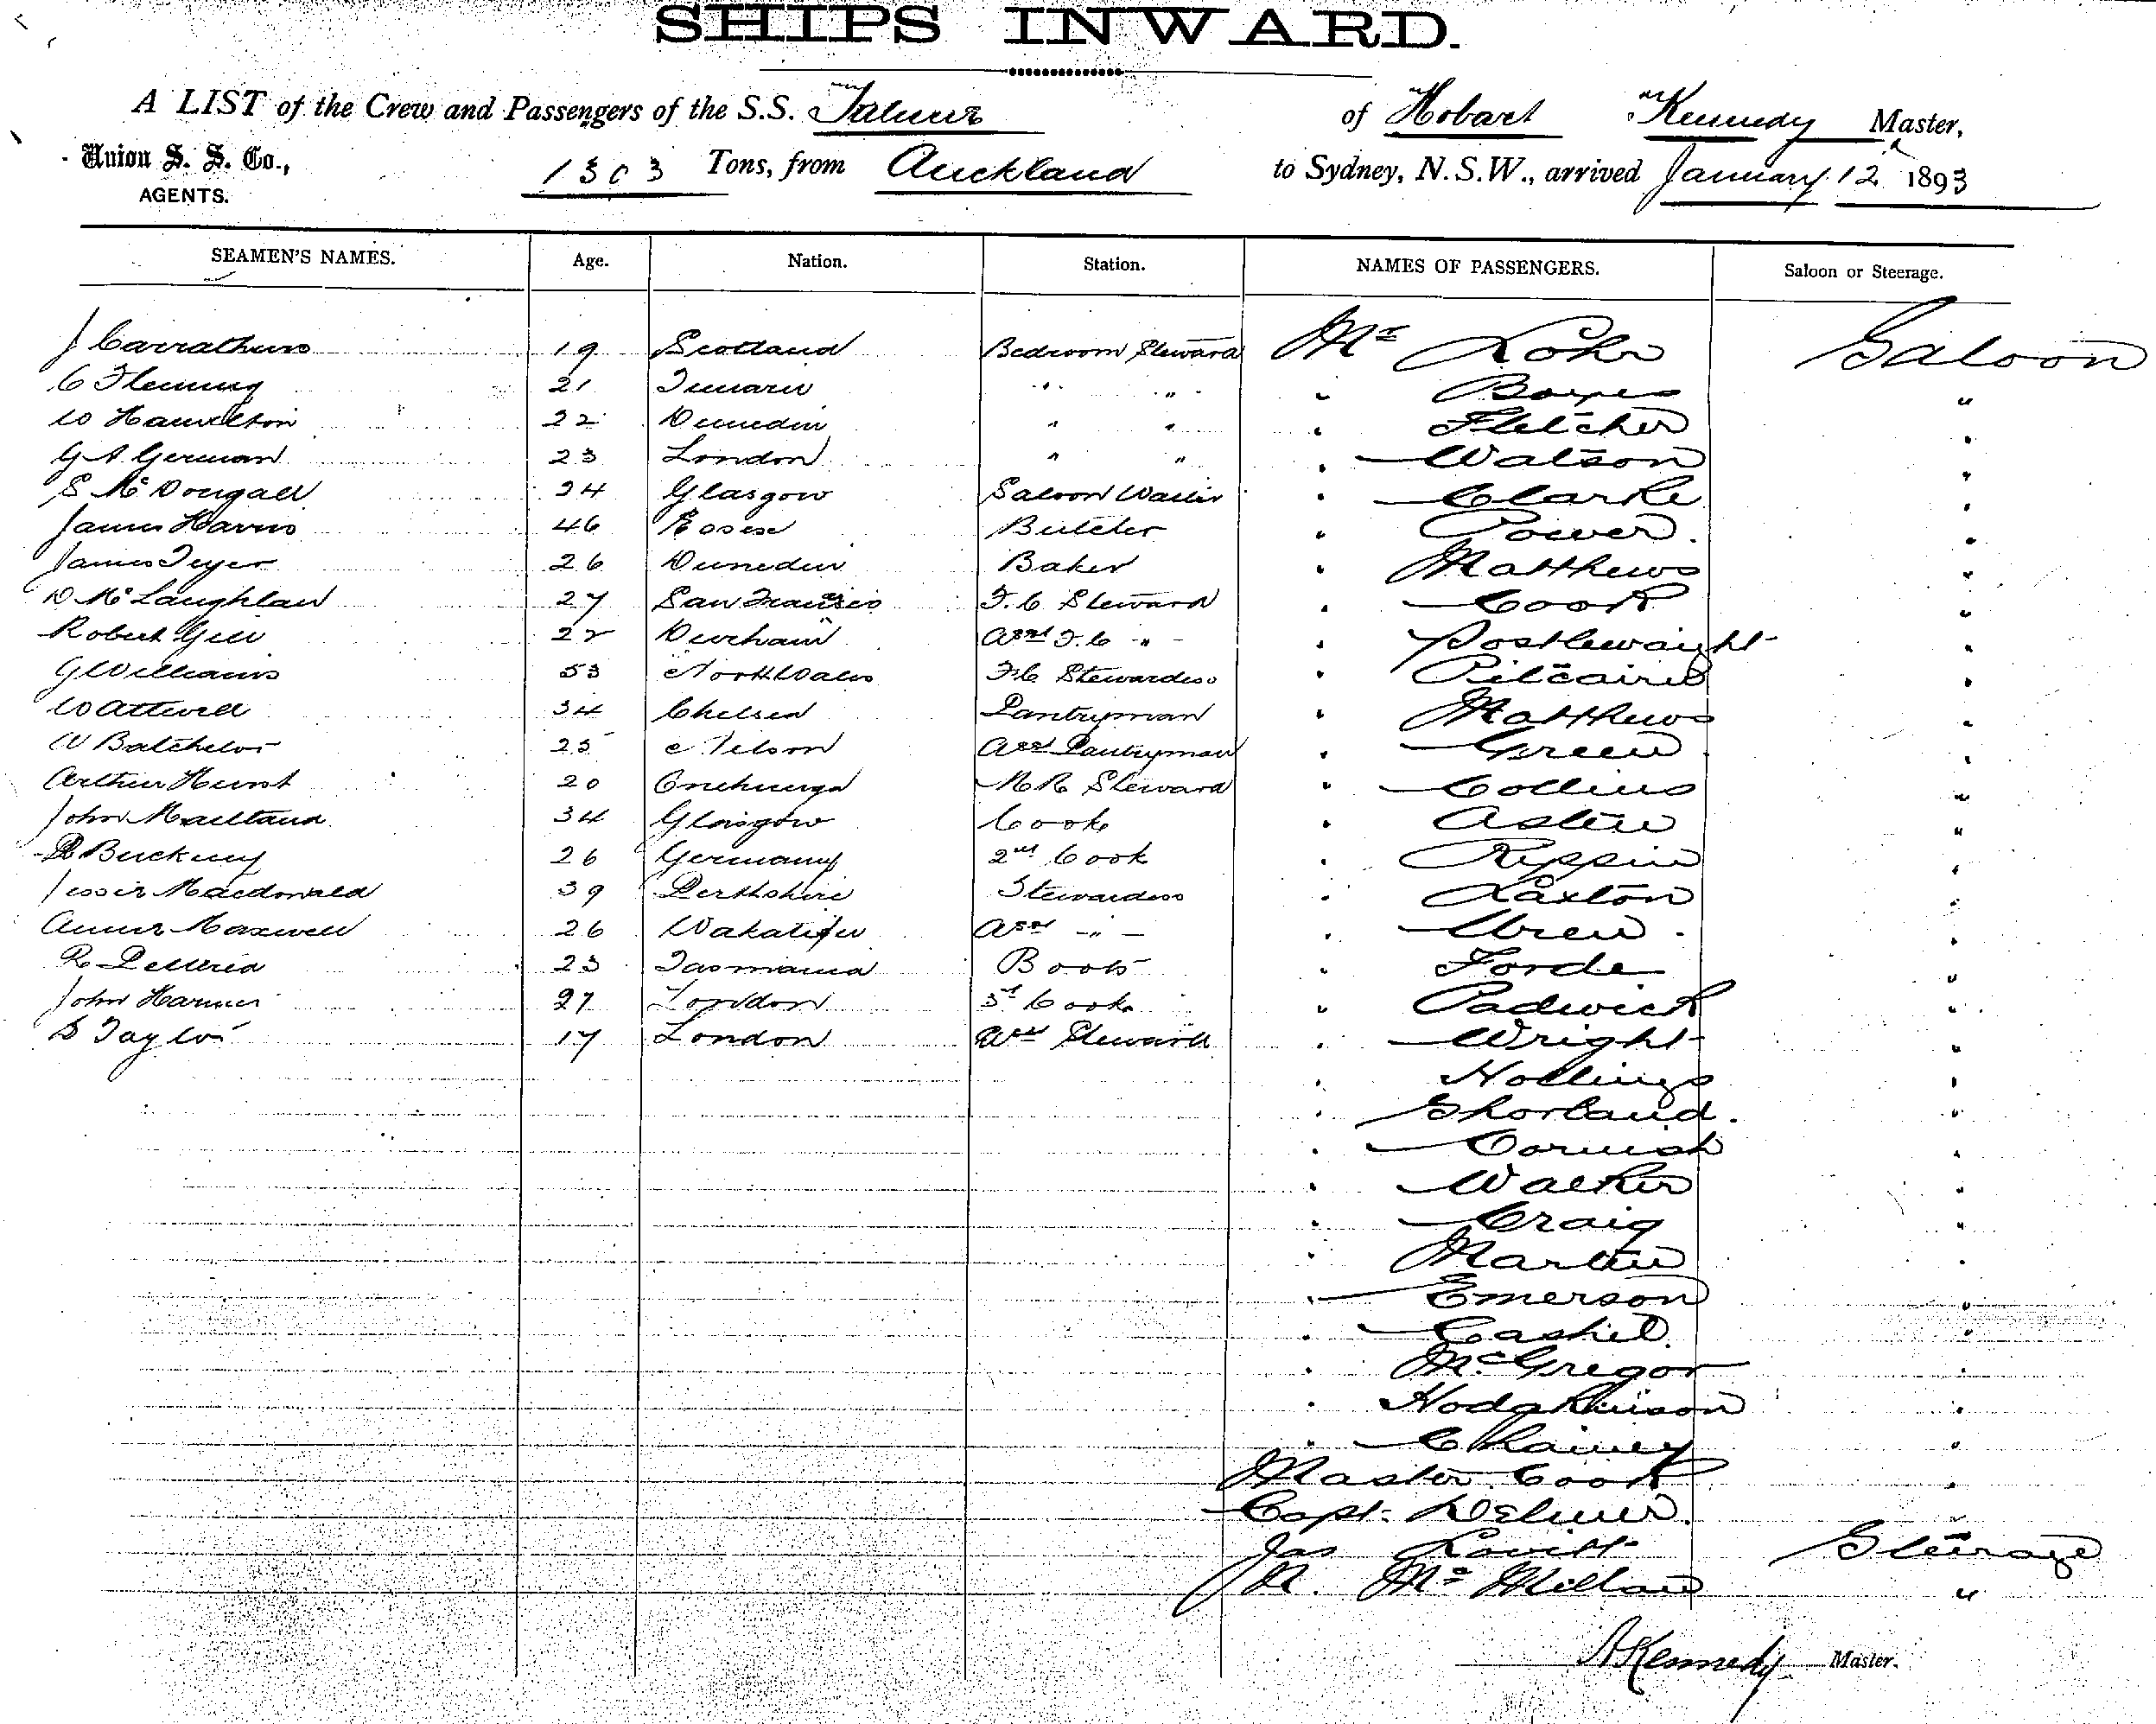 SHIPS INWARD.
A LIST of the Crew and Passengers of the S.S. of Hobart Kennedy Master,
Union S. S. Co., AGENTS. 1303 Tons, from Auckland to Sydney, N.S.W., arrived January 12 1893
SEAMEN'S NAMES. Age. Nation. Station. NAMES OF PASSENGERS. Saloon or Steerage.
J Carrathers 19 Scotland Bedroom Steward Mr Lohr Saloon
C Fleming 21 Timaru " " " "
W Hamilton 22 Dunedin " " " Fletcher "
G A German 23 London " " " Watson "
S McDougall 24 Glasgow Saloon Waiter " Clarke "
James Harris 46 Essex Butcher " Power. "
James 26 Dunedin Baker " Matthews "
D McLaughlan 27 San Francisco F.C Steward " Cook "
Robert Gill 22 Durham Asst F.C " " Postlewaight "
G Williams 53 North Wales F.C Stewardess " Pitcairn "
W Attwell 34 Chelsea Pantryman " Matthews "
W Batchelor 25 Nelson Asst Pantryman " Green "
Arthur Hurst 20 Onehunga Steward " Collins "
John Maitland 34 Glasgow Cook " "
26 Germany 2nd Cook " Rippin "
Jessie Macdonald 39 Perthshire Stewardess " Laxton "
Annie Maxwell 26 Wakatipu Asst " " "
R 23 Tasmania Boots " Forde "
John Harmer 27 London 3rd Cook " Padwick "
S Taylor 17 London Asst Steward " Wright "
" Hollings "
" Shorland. "
" Cornish "
" Walker "
" Craig "
" Martin "
" Emerson "
" Cashel "
" McGregor "
" Hodgkinson "
" "
Master Cook "
Capt. "
Jas Lovitt Steerage
M. McMillan "
A Kennedy Master.